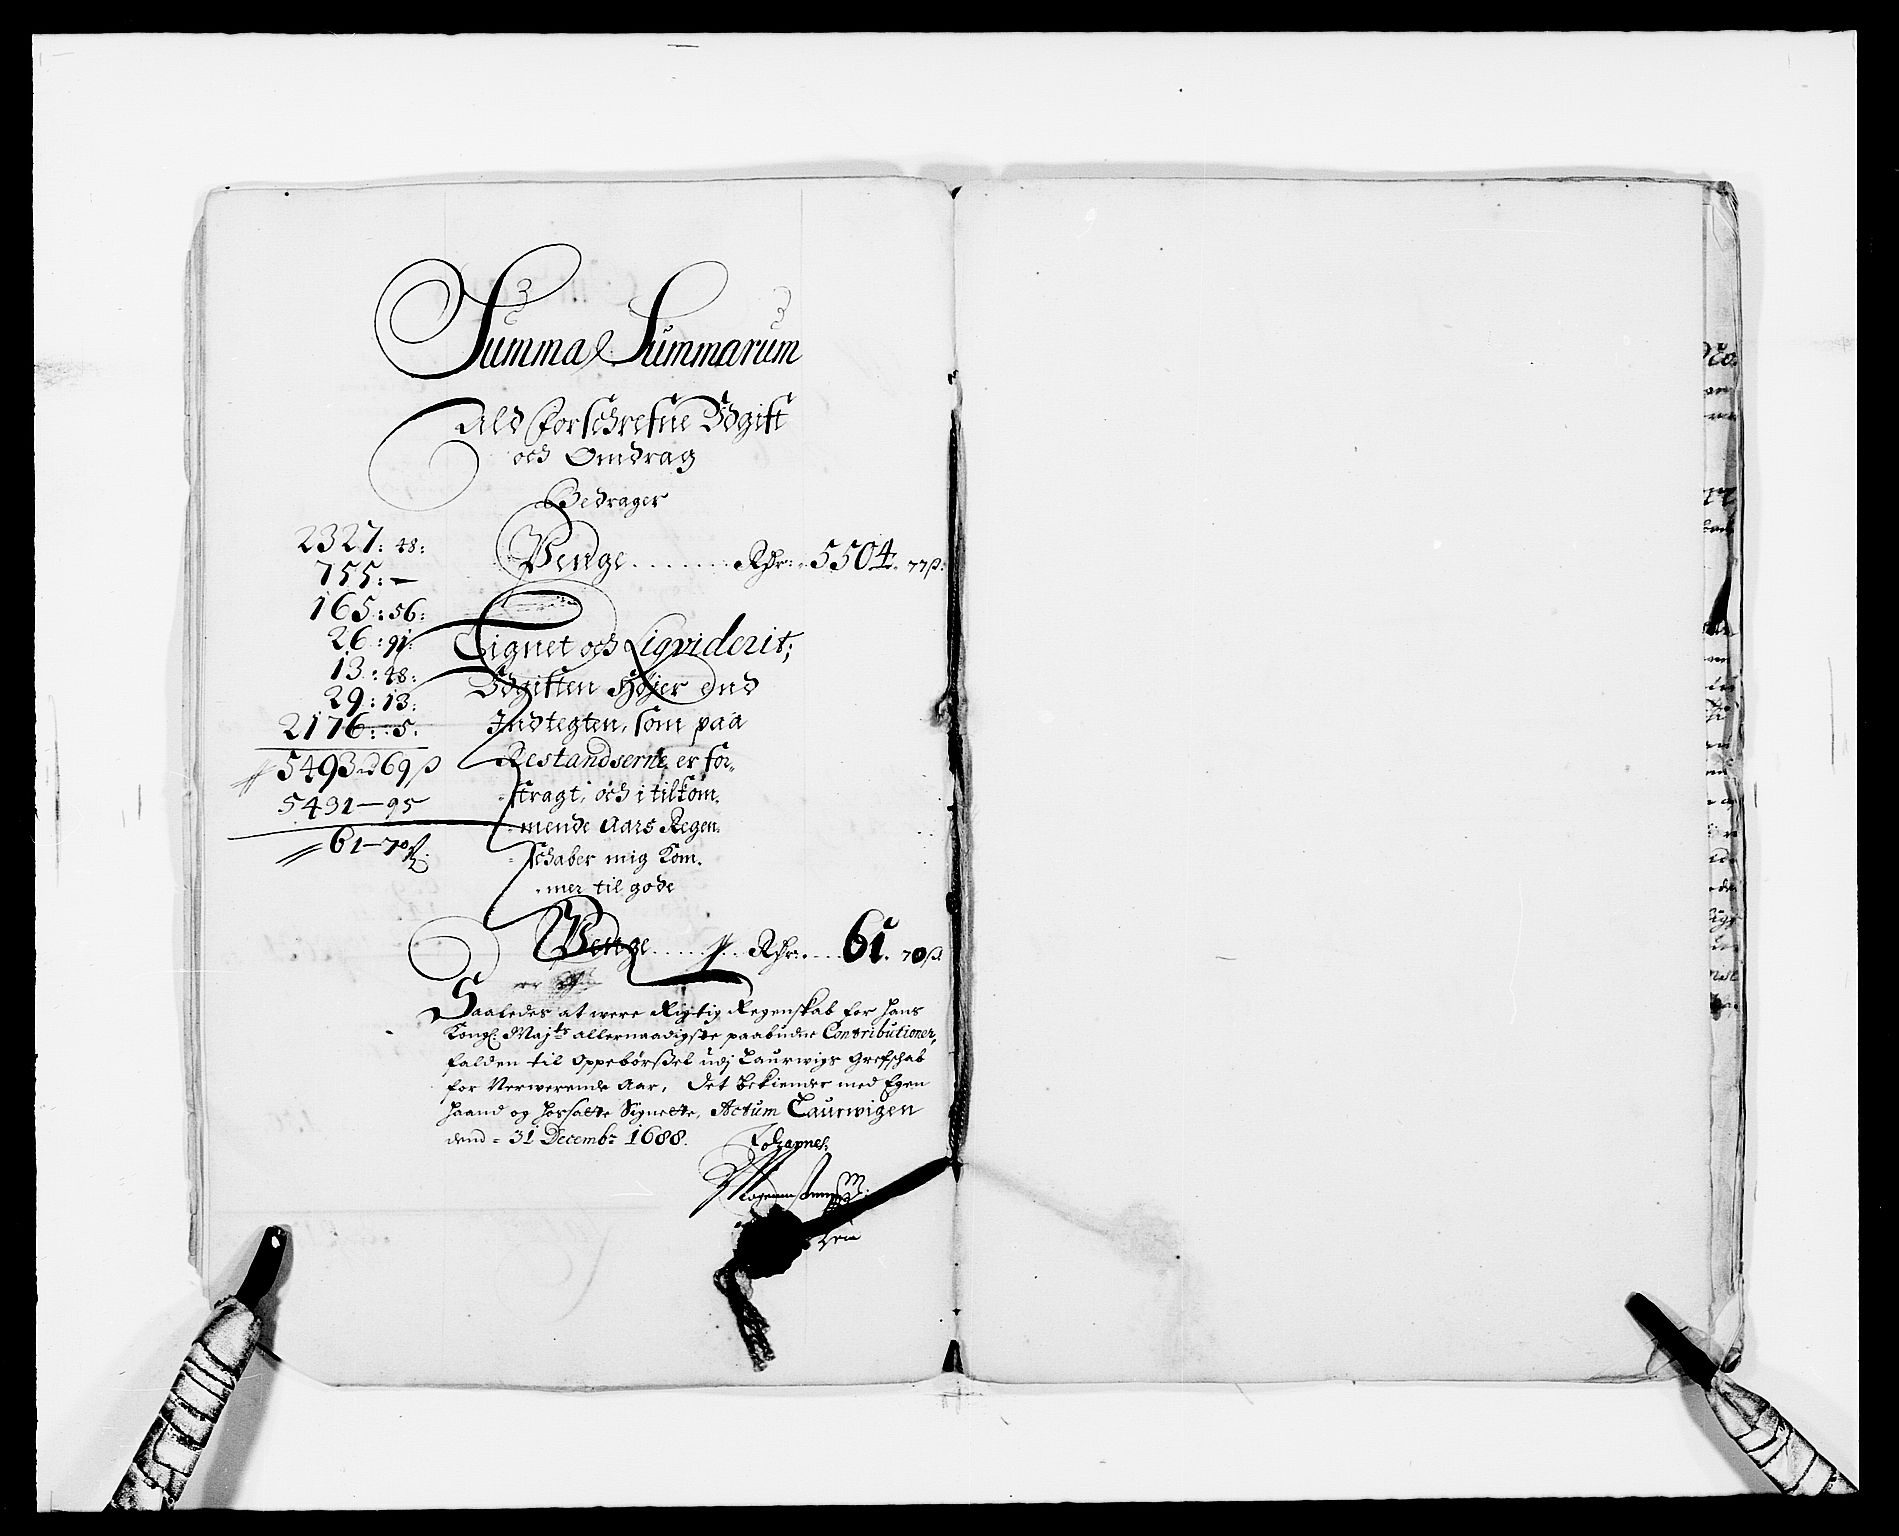 Summa Summarum
Ald forschrefne Udgift
och Omdrag
Bedrager
2327: 48:
755: —
165: 56:
26: 91:
13: 48:
29: 13:
2176: 5:
5493 rd 69 ß
5431 — 95
61 — 70 ß
Penge ....... Rdr: 5504. 77 ß:
Lignet och Liqviderit;
Udgiften Højer end
Indtegten, som paa
Restandserne er for-
stragt, och i tilkom-
mende Aars Regen-
schaber mig kom-
mer til gode
Penge ..... Rdr: .... 61. 70 ß.
Saaledes at were Rigtig Regenskab for Hans
Kongl. Maj:ts allernaadigste paabudne Contributioner,
falden til Oppebørßel udj Laurwigs Grefschab
for Nerwerende Aar, Det bekiender med Egen
Haand og hossatte Signette, Actum Laurwigen
dend = 31 Decemb: 1688.
Johannes